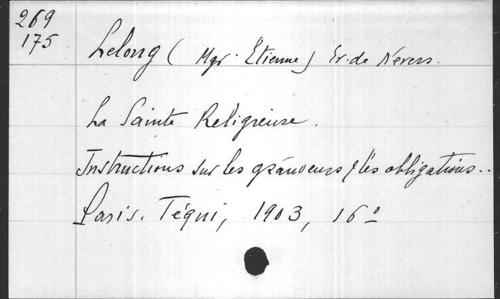 269
175
Lelong (Mgr. Étienne) Ev. de Nevers.
La Sainte Religieuse.
Instructions sur les grandeurs & les obligations...
Paris. Téqui, 1903, 16º